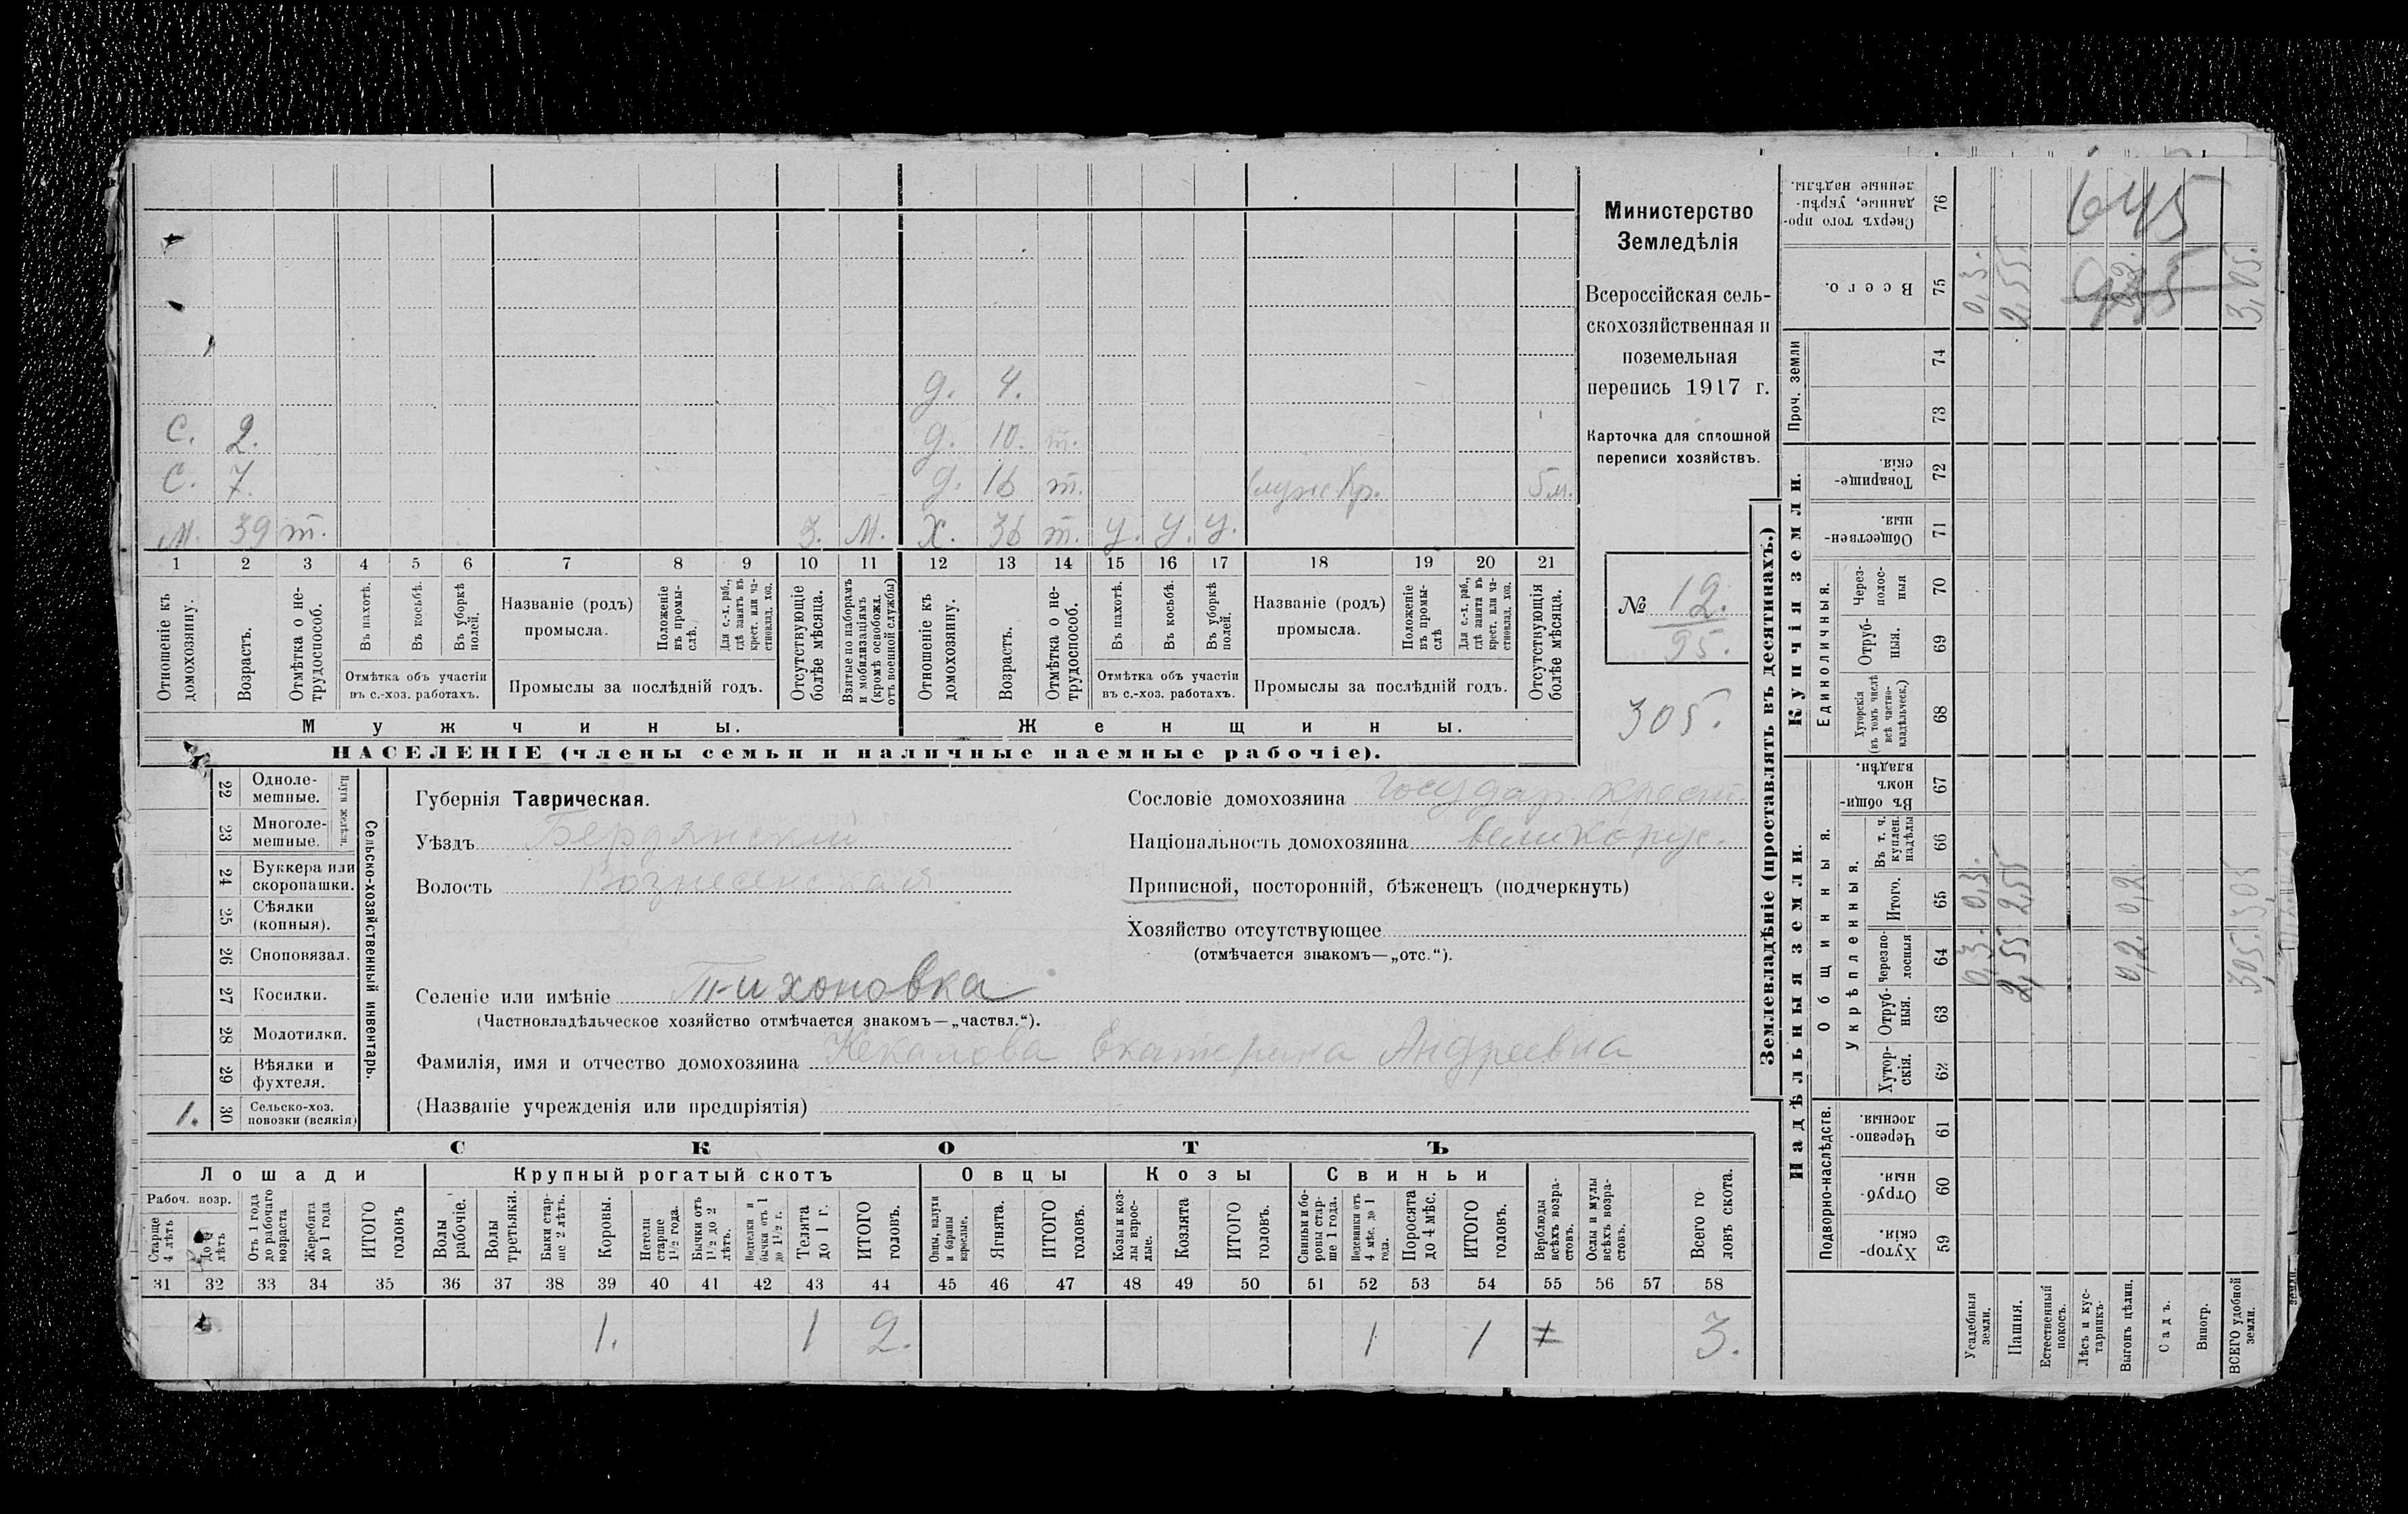 д. 4.
С. 2. д. 10. т.
С. 7. д. 16 т. служ Кр. 5 м.
М. 39 т. З. М. Х. 36 т. У. У. У.
1 2 3 4 5 6 7 8 9 10 11 12 13 14 15 16 17 18 19 20 21
Отношеніе къ домохозяину.
Возрастъ.
Отмѣтка о нетрудоспособ.
Въ пахотѣ.
Въ косьбѣ.
Въ уборкѣ полей.
Отмѣтка объ участіи
въ с.-хоз. работахъ.
Названіе (родъ)
промысла.
Положеніе въ промыслѣ.
Для с.-х. раб., гдѣ занятъ въ крест. или частновлад. хоз.
Промыслы за послѣдній годъ.
Отсутствующіе болѣе мѣсяца.
Взятые по наборамъ и мобилизаціямъ (кромѣ освобожд. отъ военной службы)
Отношеніе къ домохозяину.
Возрастъ.
Отмѣтка о нетрудоспособ.
Въ пахотѣ.
Въ косьбѣ.
Въ уборкѣ полей.
Отмѣтка объ участіи
въ с.-хоз. работахъ.
Названіе (родъ)
промысла.
Положеніе въ промыслѣ
Для с.-х. раб., гдѣ занята въ крест. или частновлад. хоз.
Промыслы за послѣдній годъ.
Отсутствующія болѣе мѣсяца.
Мужчины. Женщины.
НАСЕЛЕНІЕ (члены семьи и наличные наемные рабочіе).
Министерство
Земледѣлія
Всероссійская сель-
скохозяйственная и
поземельная
перепись 1917 г.
Карточка для сплошной
переписи хозяйствъ.
№ 12.
95.
305.
Сельско-хозяйственный инвентарь.
Плуги желѣзн.
22 Одноле-
мешные.
23 Многоле-
мешные.
24 Буккера или
скоропашки.
25 Сѣялки
(конныя).
26 Сноповязал.
27 Косилки.
28 Молотилки.
29 Вѣялки и
фухтеля.
1. 30 Сельско-хоз.
повозки (всякія)
Губернія Таврическая.
Уѣздъ Бердянский
Волость Вознесенская
Сословіе домохозяина государ. крест.
Національность домохозяина великорус.
Приписной, посторонній, бѣженецъ (подчеркнуть)
Хозяйство отсутствующее
(отмѣчается знакомъ—„отс.“).
Селеніе или имѣніе Тихоновка
(Частновладѣльческое хозяйство отмѣчается знакомъ—„частвл.“).
Фамилія, имя и отчество домохозяина Кекалова Екатерина Андреевна
(Названіе учрежденія или предпріятія)
СКОТЪ
Лошади Крупный рогатый скотъ Овцы Козы Свиньи
Рабоч. возр.
Старше 4 лѣтъ
До 4 лѣтъ
Отъ 1 года до рабочаго возраста
Жеребята до 1 года
ИТОГО головъ
Волы рабочіе.
Волы третьяки.
Быки старше 2 лѣтъ.
Коровы.
Нетели старше 1½ года.
Бычки отъ 1½ до 2 лѣтъ.
Подтелки и бычки отъ 1 до 1½ г.
Телята до 1 г.
ИТОГО головъ.
Овцы, валухи и бараны взрослые.
Ягнята.
ИТОГО головъ.
Козы и козлы взрослые.
Козлята
ИТОГО головъ.
Свиньи и боровы старше 1 года.
Подсвинки отъ 4 мѣс. до 1 года.
Поросята до 4 мѣс.
ИТОГО головъ.
Верблюды всѣхъ возрастовъ.
Ослы и мулы всѣхъ возрастовъ.
Всего головъ скота.
31 32 33 34 35 36 37 38 39 40 41 42 43 44 45 46 47 48 49 50 51 52 53 54 55 56 57 58
1. 1 2. 1 1 3.
Землевладѣніе (проставлять въ десятинахъ.)
Надѣльныя земли. Купчія земли. Проч. земли
Подворно-наслѣдств.
Хуторскія. 59
Отрубныя. 60
Черезполосныя. 61
Общинныя.
Укрѣпленныя.
Хуторскія. 62
Отрубныя. 63
Черезполосныя 64
Итого. 65
Въ т. ч. куплен. надѣлы 66
Въ общинномъ владѣн. 67
Единоличныя.
Хуторскія (въ томъ числѣ всѣ частновладѣльческ.) 68
Отрубныя. 69
Черезполосныя 70
Общественныя. 71
Товарищескія. 72
73
74
Всего. 75
Сверхъ того проданные, укрѣпленные надѣлы. 76
Усадебныя земли. 0,3. 0,3. 0,3.
Пашня. 2,55 2,55 2,55
Естественный покосъ.
Лѣсъ и кустарникъ.
Выгонъ цѣлин. 0,2. 0,2.
Садъ.
Виногр.
ВСЕГО удобной земли. 305. 3,05 3,05.
645